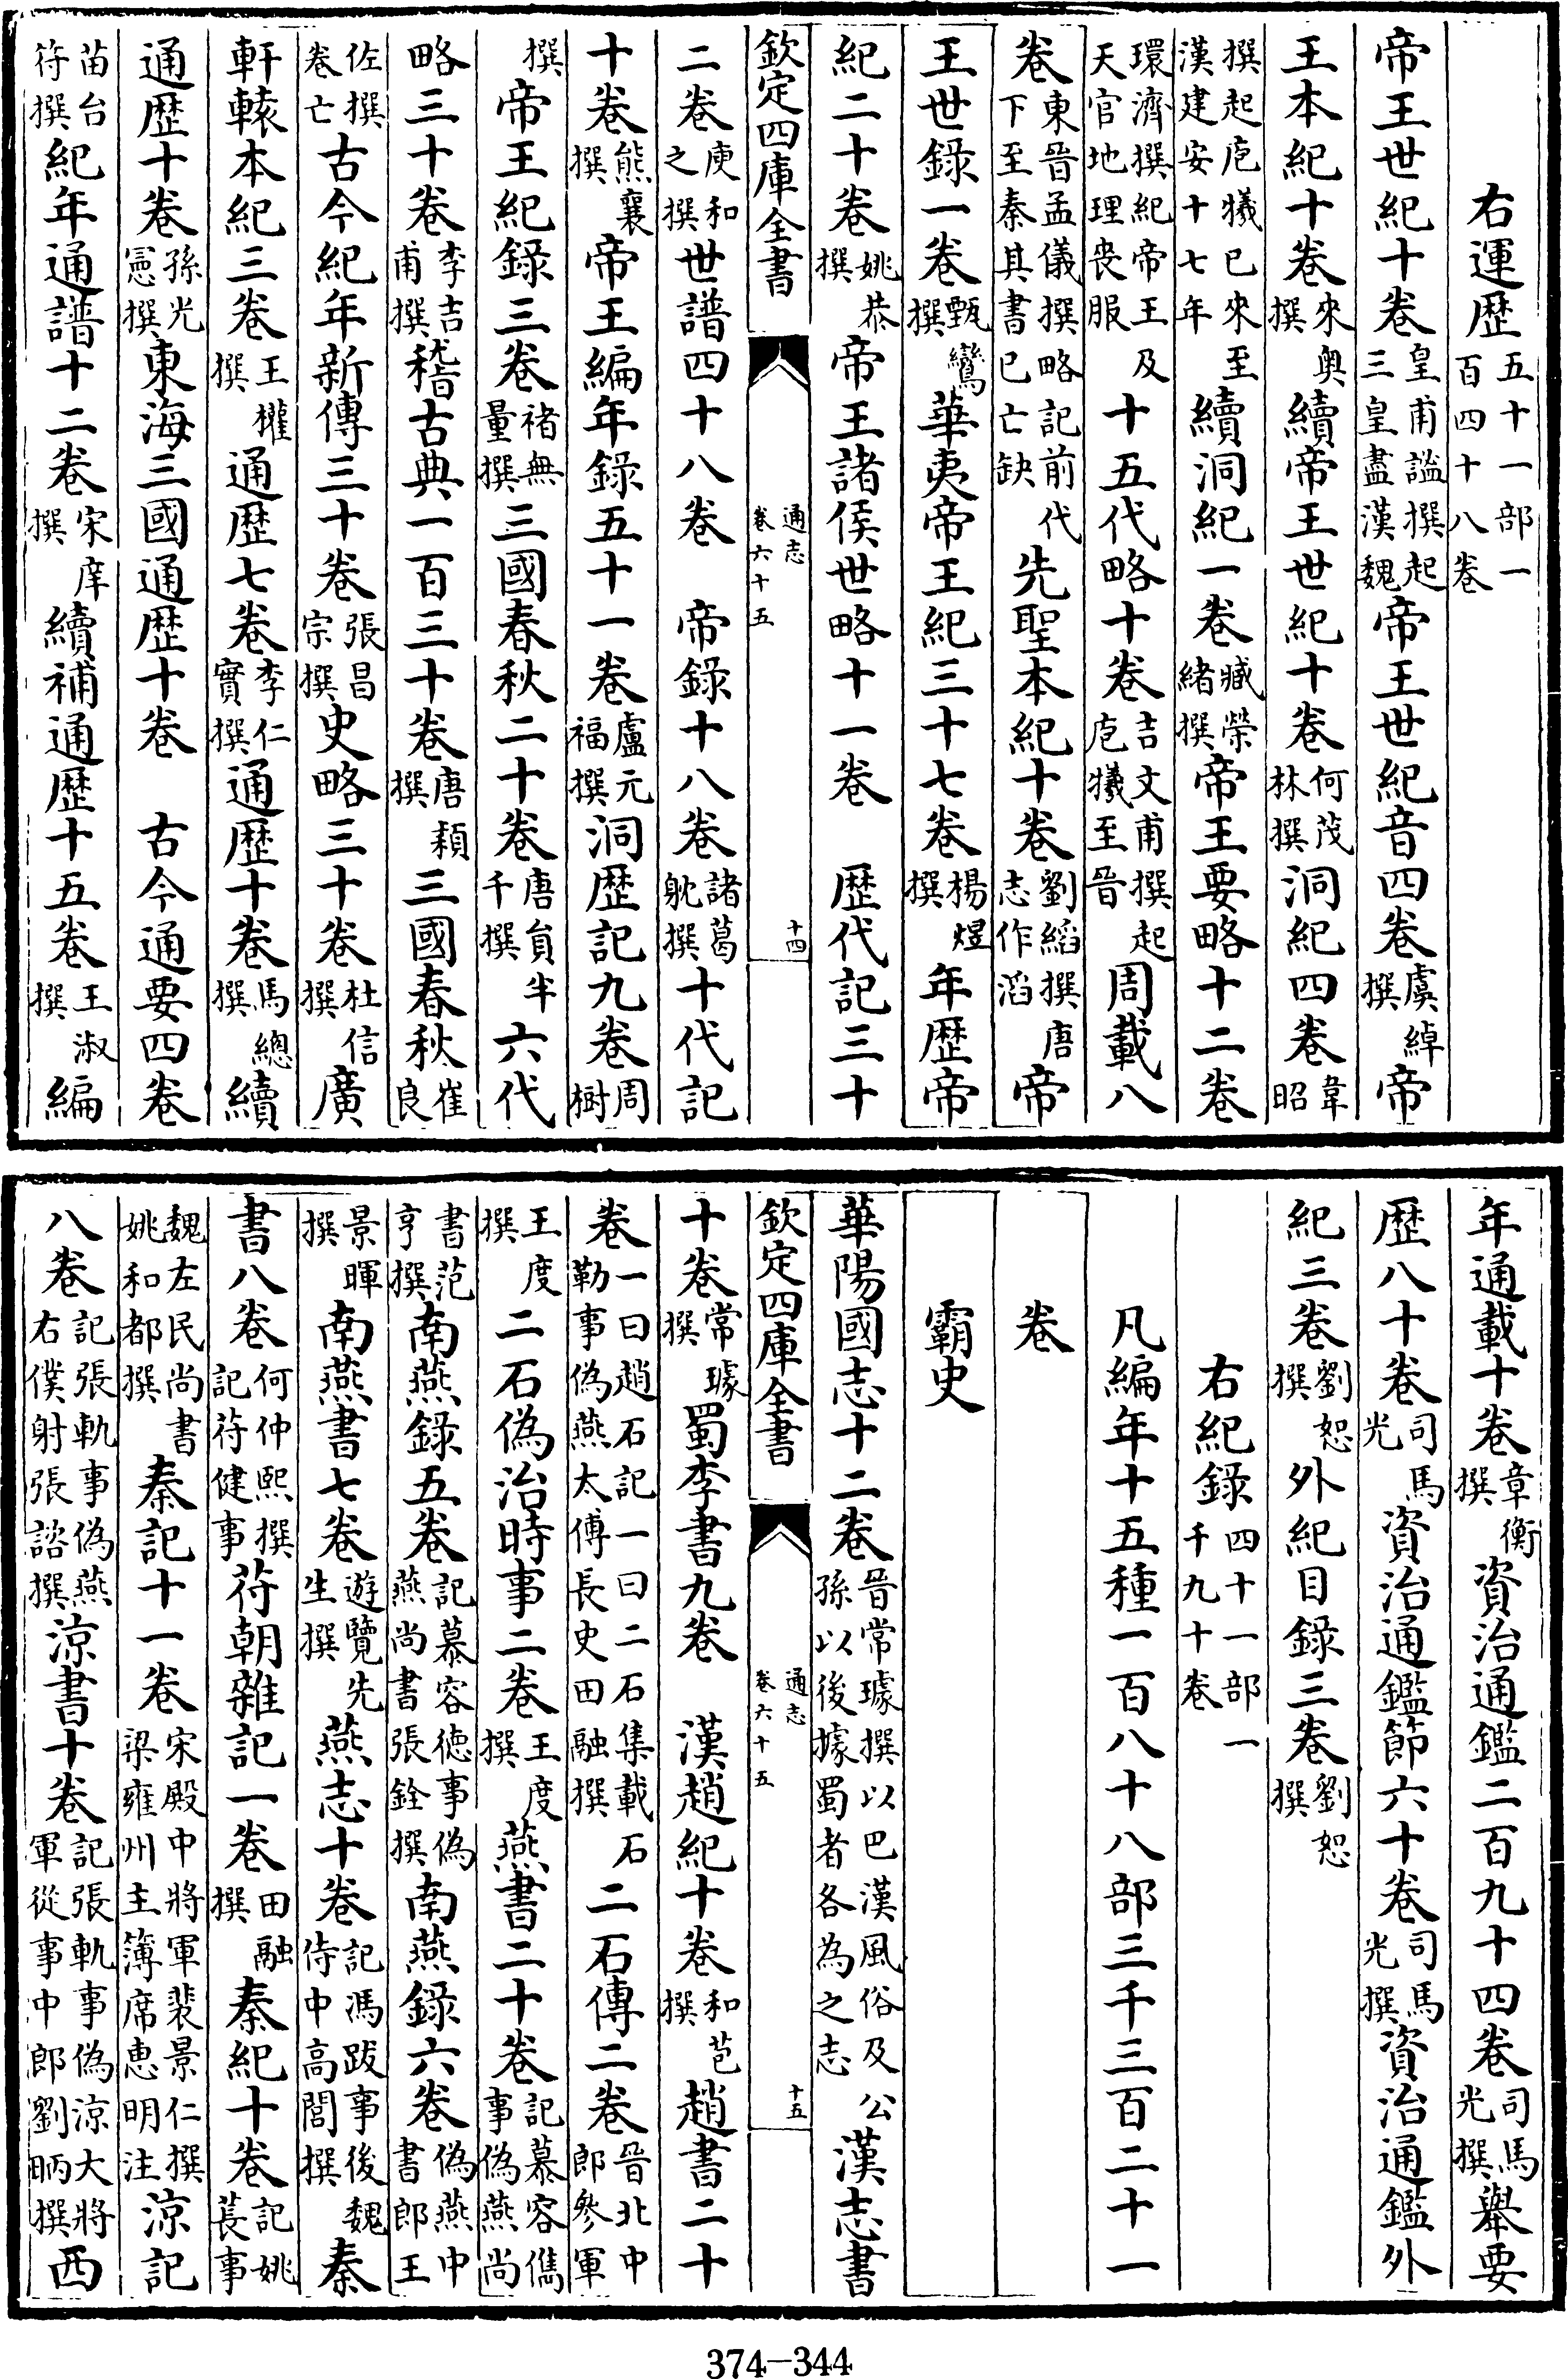 右運歴五十一部一百四十八卷
帝王世紀十卷皇甫謐撰起三皇盡漢魏帝王世紀音四卷虞綽撰帝
王本紀十卷來奥撰續帝王世紀十卷何茂林撰洞紀四卷韋昭
撰起庖犧已來至漢建安十七年續洞紀一卷臧榮緒撰帝王要略十二卷
環濟撰紀帝王及天官地理喪服十五代略十卷吉文甫撰起庖犧至晉周載八
卷東晉孟儀撰略記前代下至秦其書已亡缺先聖本紀十卷劉縚撰唐志作滔帝
王世錄一卷甄鸞撰華夷帝王紀三十七卷楊煜撰年歴帝
紀二十卷姚恭撰帝王諸侯世略十一卷歴代記三十
欽定四庫全書 通志卷六十五 十四
二卷庾和之撰世譜四十八卷帝錄十八卷諸葛躭撰十代記
十卷熊襄撰帝王編年錄五十一卷盧元福撰洞歴記九卷周樹
撰帝王紀錄三卷褚無量撰三國春秋二十卷唐員半千撰六代
略三十卷李吉甫撰稽古典一百三十卷唐穎撰三國春秋崔良
佐撰卷亡古今紀年新傳三十卷張昌宗撰史略三十卷杜信撰廣
軒轅本紀三卷王權撰通歴七卷李仁實撰通歴十卷馬總撰續
通歴十卷孫光憲撰東海三國通歴十卷古今通要四卷
苗台符撰紀年通譜十二卷宋庠撰續補通歴十五卷王淑撰編
年通載十卷章衡撰資治通鑑二百九十四卷司馬光撰舉要
歴八十卷司馬光資治通鑑節六十卷司馬光撰資治通鑑外
紀三卷劉恕撰外紀目錄三卷劉恕撰
右紀錄四十一部一千九十卷
凡編年十五種一百八十八部三千三百二十一
卷
霸史
華陽國志十二卷晉常璩撰以巴漢風俗及公孫以後據蜀者各為之志漢志書
欽定四庫全書 通志卷六十五 十五
十卷常璩撰蜀李書九卷漢趙紀十卷和苞撰趙書二十
卷一曰趙石記一曰二石集載石勒事偽燕太傅長史田融撰二石傳二卷晉北中郎參軍
王度撰二石偽治時事二卷王度撰燕書二十卷記慕容儁事偽燕尚
書范亨撰南燕錄五卷記慕容徳事偽燕尚書張銓撰南燕錄六卷偽燕中書郎王
景暉撰南燕書七卷遊覽先生撰燕志十卷記馮跋事後魏侍中高閭撰秦
書八卷何仲熙撰記苻健事苻朝雜記一卷田融撰秦紀十卷記姚萇事
魏左民尚書姚和都撰秦記十一卷宋殿中將軍裴景仁撰梁雍州主簿席惠明注涼記
八卷記張軌事偽燕右僕射張諮撰涼書十卷記張軌事偽涼大將軍從事中郎劉昞撰西
374-344